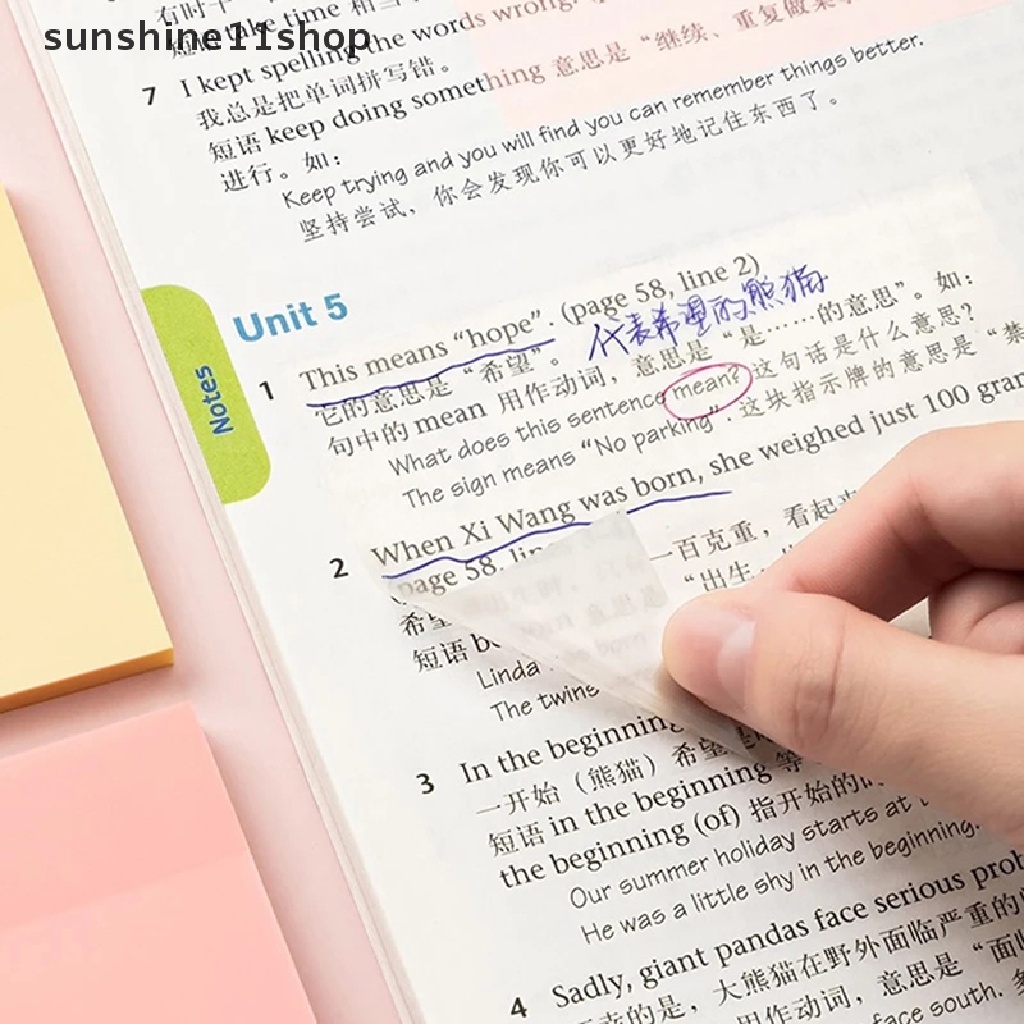 sunshine11shop
右时
短语 take time
I kept spelling the words wrong.
7
我总是把单词拼写错。
短语 keep doing something 意思是“继续、重复做某
进行。如：
Keep trying and you will find you can remember things better.
坚持尝试，你会发现你可以更好地记住东西了。
Unit 5
Notes
1 This means “hope”. (page 58, line 2)
代表希望的熊猫
它的意思是“希望”。
句中的 mean 用作动词，意思是“是……的意思”。如：
What does this sentence mean? 这句话是什么意思？
The sign means “No parking”. 这块指示牌的意思是“禁
2 When Xi Wang was born, she weighed just 100 gram
(page 58, line
希望 一百克重，看起来
短语 be “出生
Linda
The twins
3 In the beginning
一开始（熊猫）希望
短语 in the beginning 等
the beginning (of) 指开始的
Our summer holiday starts at t
He was a little shy in the beginning.
4 Sadly, giant pandas face serious prob
不幸的是，大熊猫在野外面临严重的
用作动词，意思是“面临
face south.